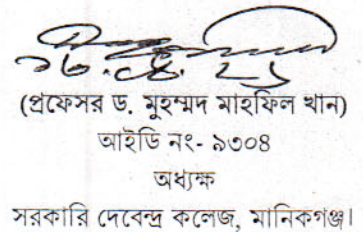 (প্রফেসর ড. মুহম্মদ মাহফিল খান)
আইডি নং- ৯৩০৪
অধ্যক্ষ
সরকারি দেবেন্দ্র কলেজ, মানিকগঞ্জ।